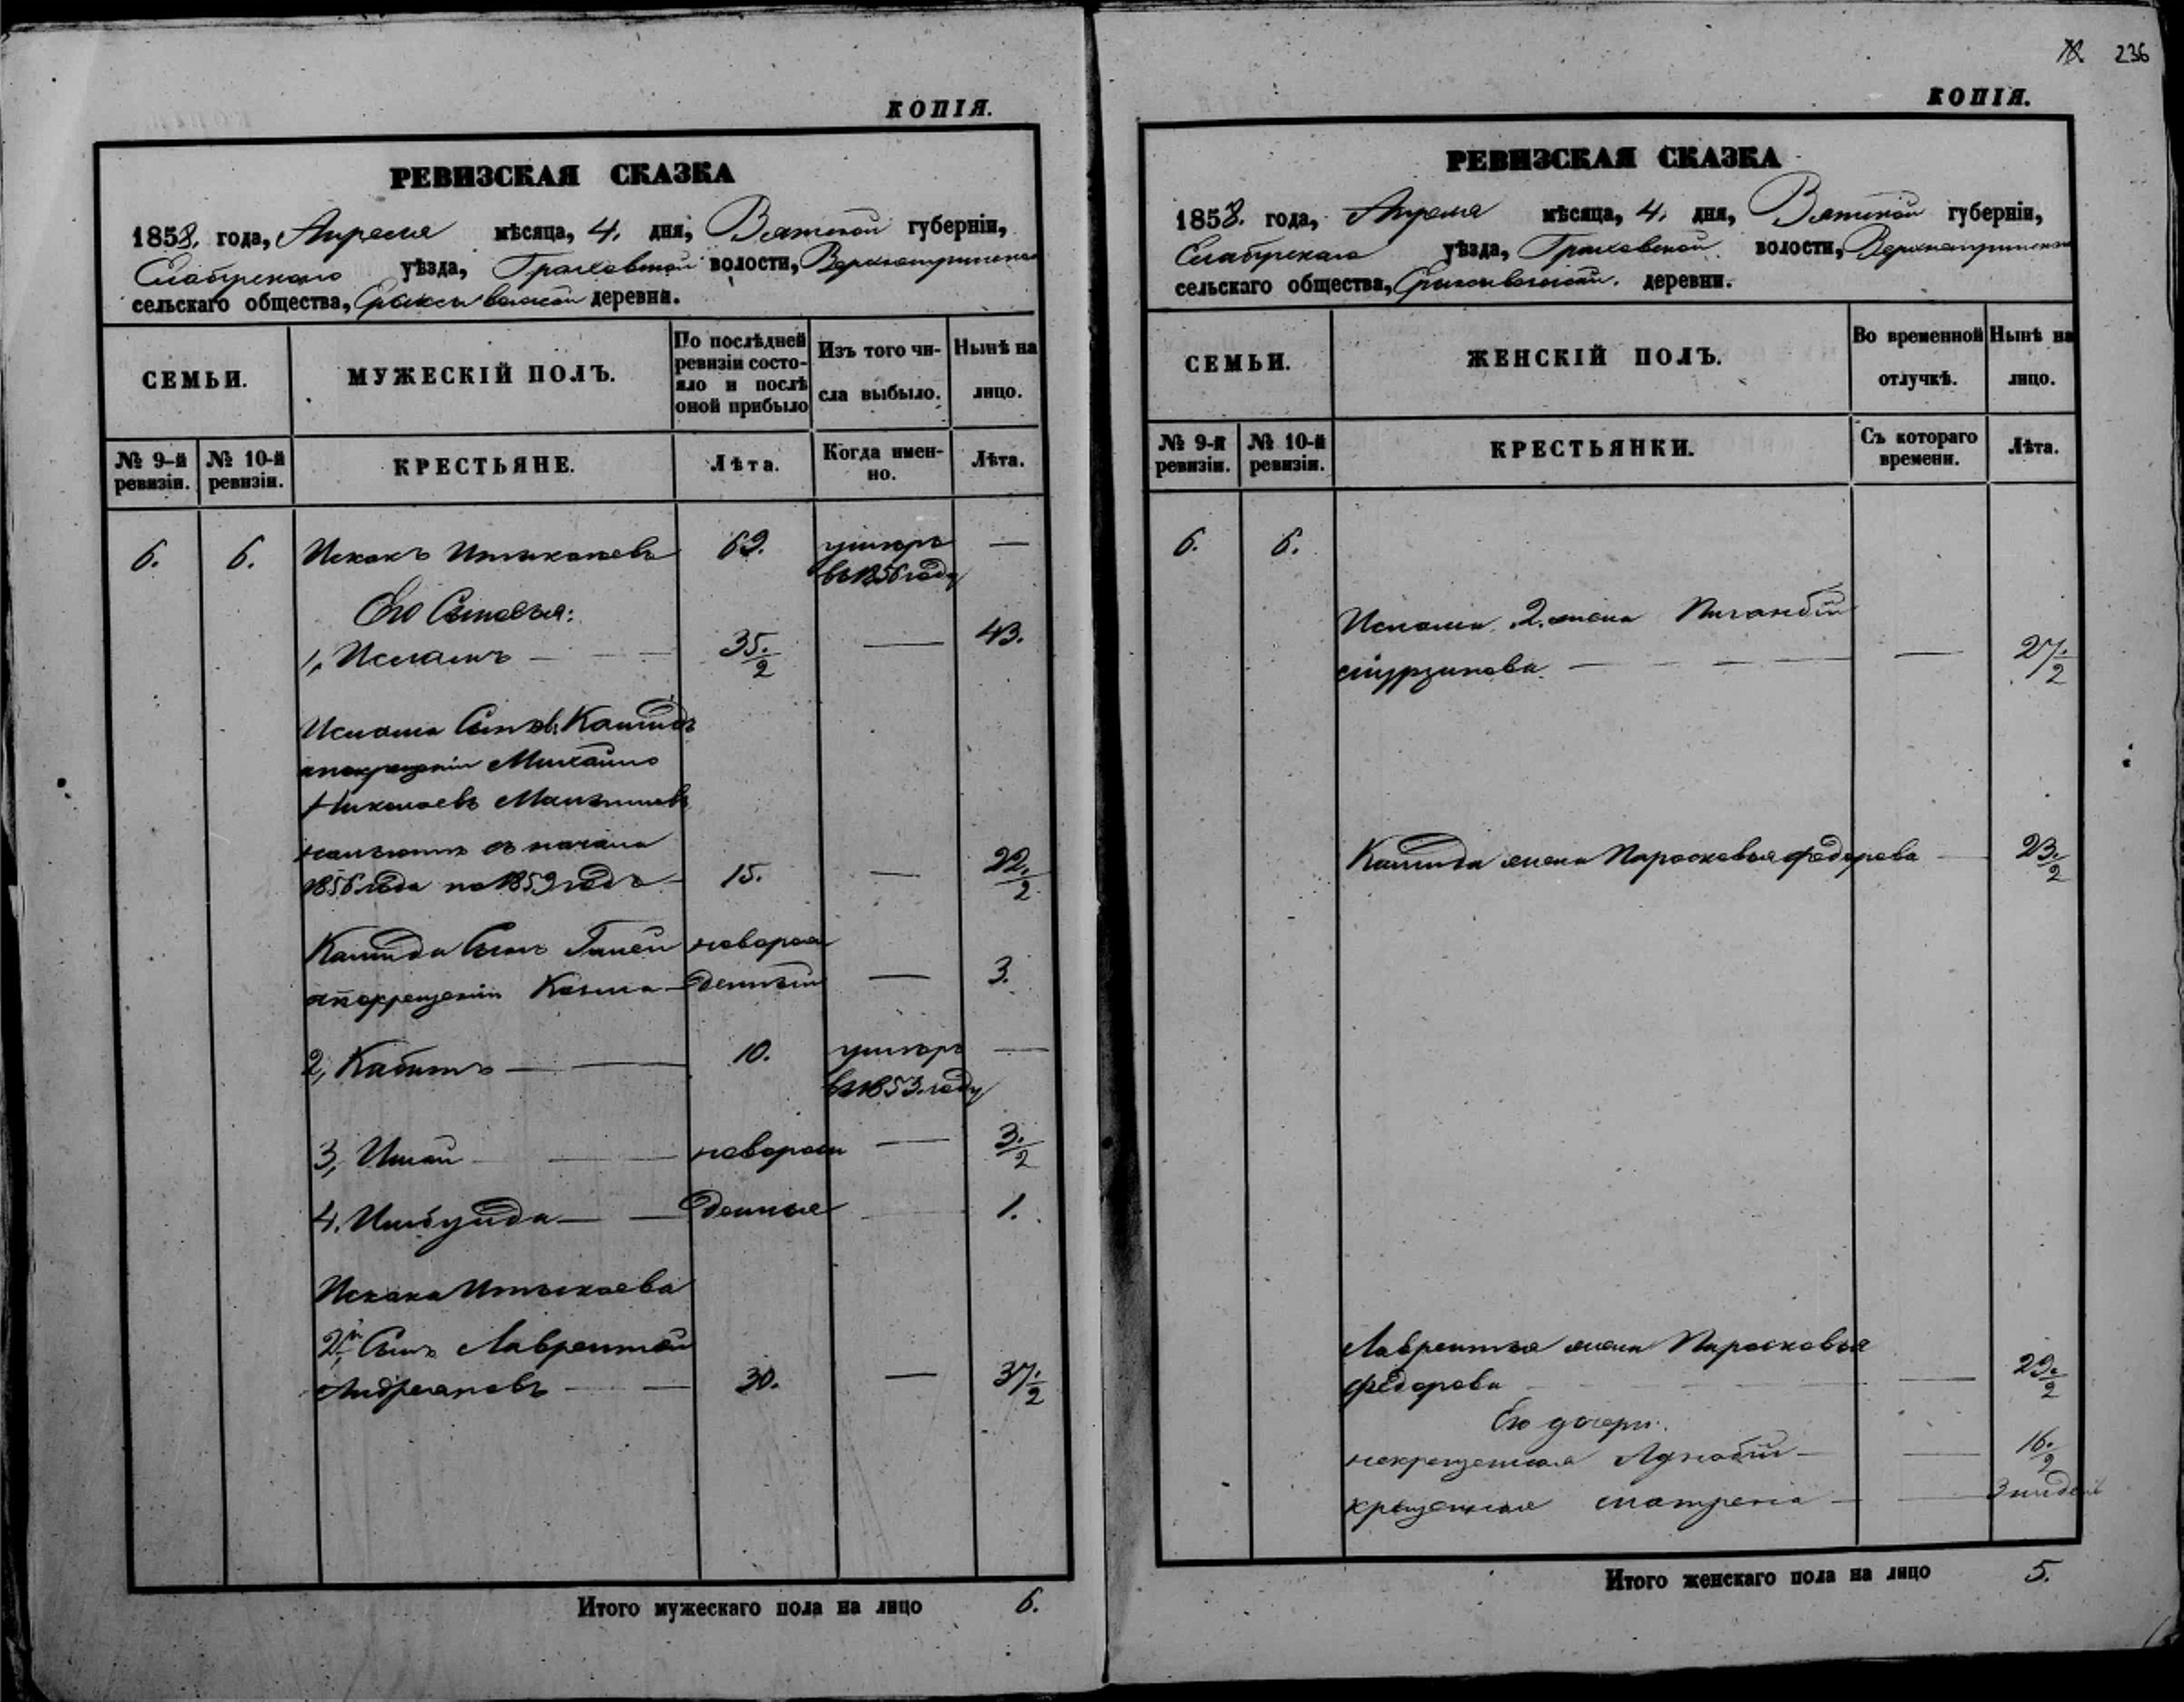 КОПІЯ.
РЕВИЗСКАЯ СКАЗКА
1858. года, Апреля мѣсяца, 4. дня, Вятской губерніи,
Елабужскаго уѣзда, Граховской волости,
сельскаго общества, деревни.
СЕМЬИ.
МУЖЕСКІЙ ПОЛЪ.
По послѣдней
ревизіи состо-
яло и послѣ
оной прибыло
Изъ того чи-
сла выбыло.
Нынѣ на
лицо.
№ 9-й
ревизіи.
№ 10-й
ревизіи.
КРЕСТЬЯНЕ.
Лѣта.
Когда имен-
но.
Лѣта.
6. 6. Искакъ 69. умеръ —
въ 1856 году
Его Сыновья:
1, Исламъ 35./2 — 43.
Ислама Сынъ
Михайло
Николаевъ
съ начала
1856 года по 1859 годъ 15. — 22./2
Сынъ новорож
— денный — 3.
2, Кабитъ 10. умеръ —
въ 1853. году
3, новорож — 3./2
4. денные 1.
Искака
2й, Сынъ Лаврентей
Андреяновъ 30. — 37./2
Итого мужескаго пола на лицо 6.
236
КОПІЯ.
РЕВИЗСКАЯ СКАЗКА
1858. года, Апреля мѣсяца, 4. дня, Вятской губерніи,
Елабужскаго уѣзда, Граховской волости,
сельскаго общества, деревни.
СЕМЬИ.
ЖЕНСКІЙ ПОЛЪ.
Во временной
отлучкѣ.
Нынѣ на
лицо.
№ 9-й
ревизіи.
№ 10-й
ревизіи.
КРЕСТЬЯНКИ.
Съ котораго
времени.
Лѣта.
6. 6.
Ислама 2. жена
— 27./2
жена Парасковья Федорова 23./2
Лаврентья жена Парасковья
Федорова — 29./2
Его дочери:
некрещенная — 16./2
крещенная Матрена — 3 недель
Итого женскаго пола на лицо 5.